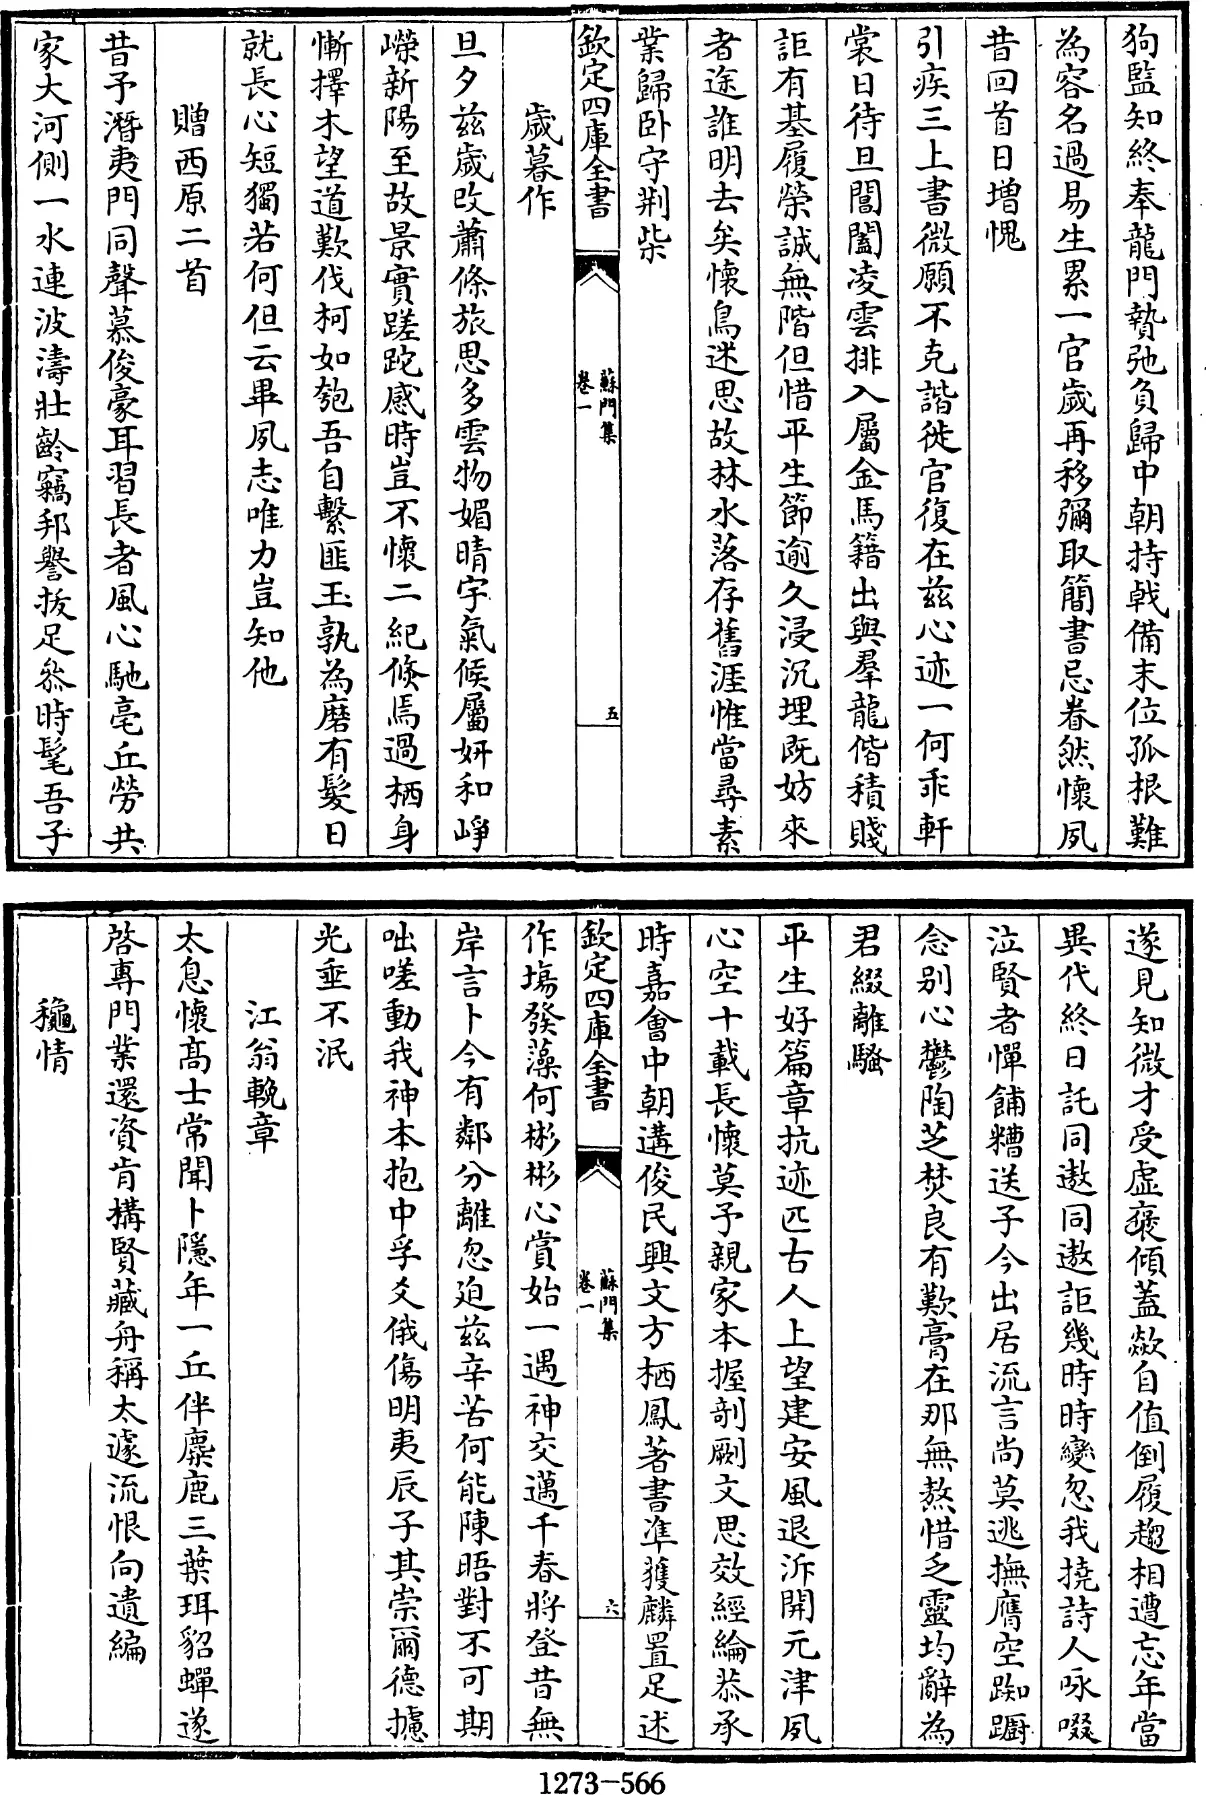 狗監知終奉龍門贄弛負歸中朝持戟備末位孤根難
為容名過易生累一官歲再移彌取簡書忌眷然懷夙
昔回首日增愧
引疾三上書微願不克諧徙官復在兹心迹一何乖軒
裳日待旦閶闔凌雲排入屬金馬籍出與羣龍偕積賤
詎有基履榮誠無階但惜平生節逾久浸沉埋既妨來
者途誰明去矣懷鳥迷思故林水落存舊涯惟當尋素
業歸卧守荆柴
欽定四庫全書
蘇門集
卷一
五
歲暮作
旦夕兹歲改蕭條旅思多雲物媚晴宇氣候屬妍和崢
嶸新陽至故景實蹉跎感時豈不懷二紀倐焉過栖身
慚擇木望道歎伐柯如匏吾自繫匪玉孰為磨有髮日
就長心短獨若何但云畢夙志唯力豈知他
贈西原二首
昔予潛夷門同聲慕俊豪耳習長者風心馳亳丘勞共
家大河側一水連波濤壯齡竊邦譽拔足叅時髦吾子
遂見知微才受虛褒傾蓋歘自值倒履趨相遭忘年當
異代終日託同遨同遨詎幾時時變忽我撓詩人咏啜
泣賢者憚餔糟送子今出居流言尚莫逃撫膺空踟躕
念别心鬱陶芝焚良有歎膏在那無熬惜乏靈均辭為
君綴離騷
平生好篇章抗迹匹古人上望建安風退泝開元津夙
心空十載長懷莫予親家本握剞劂文思效經綸恭承
時嘉會中朝遘俊民興文方栖鳳著書准獲麟置足述
欽定四庫全書
蘇門集
卷一
六
作塲發藻何彬彬心賞始一遇神交邁千春將登昔無
岸言卜今有鄰分離忽迫兹辛苦何能陳晤對不可期
咄嗟動我神本抱中孚爻俄傷明夷辰子其崇爾德攄
光垂不泯
江翁輓章
太息懷髙士常聞卜隱年一丘伴麋鹿三葉珥貂蟬遂
啓專門業還資肯構賢藏舟稱太遽流恨向遺編
龝情
1273-566